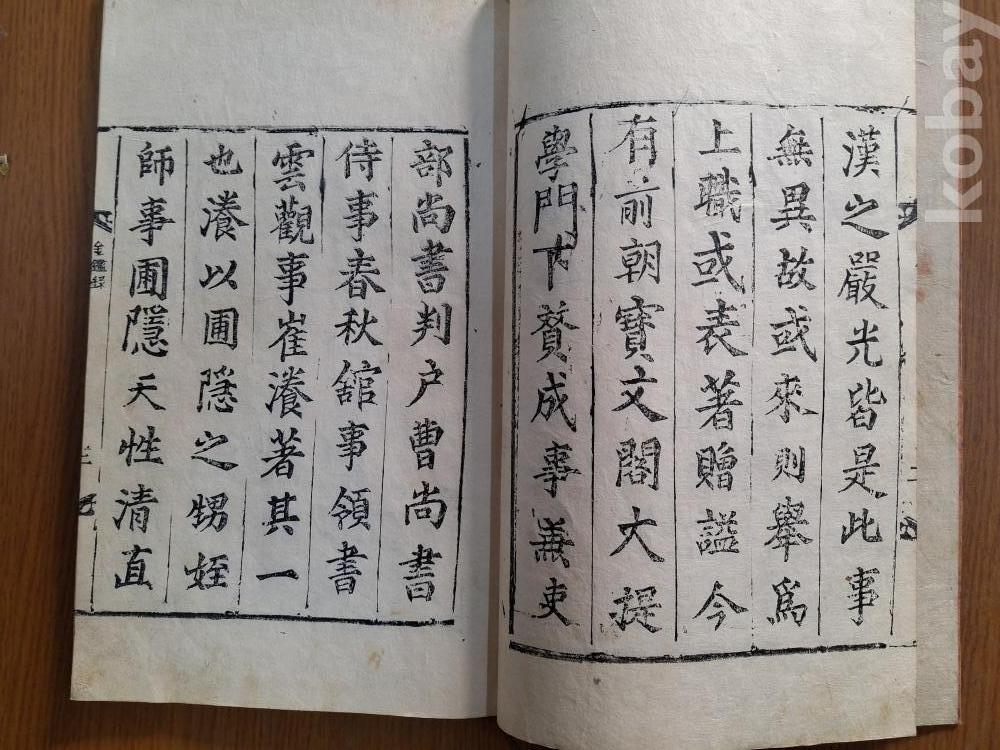 漢之嚴光皆是此事
無異故或來則舉爲
上職或表著贈謚今
有前朝寶文閣大提
學門下贊成事兼吏
部尚書判户曹尚書
侍事春秋舘事領書
雲觀事崔瀁著其一
也瀁以圃隱之甥姪
師事圃隱天性清直
金鑑録
二
三
kobay